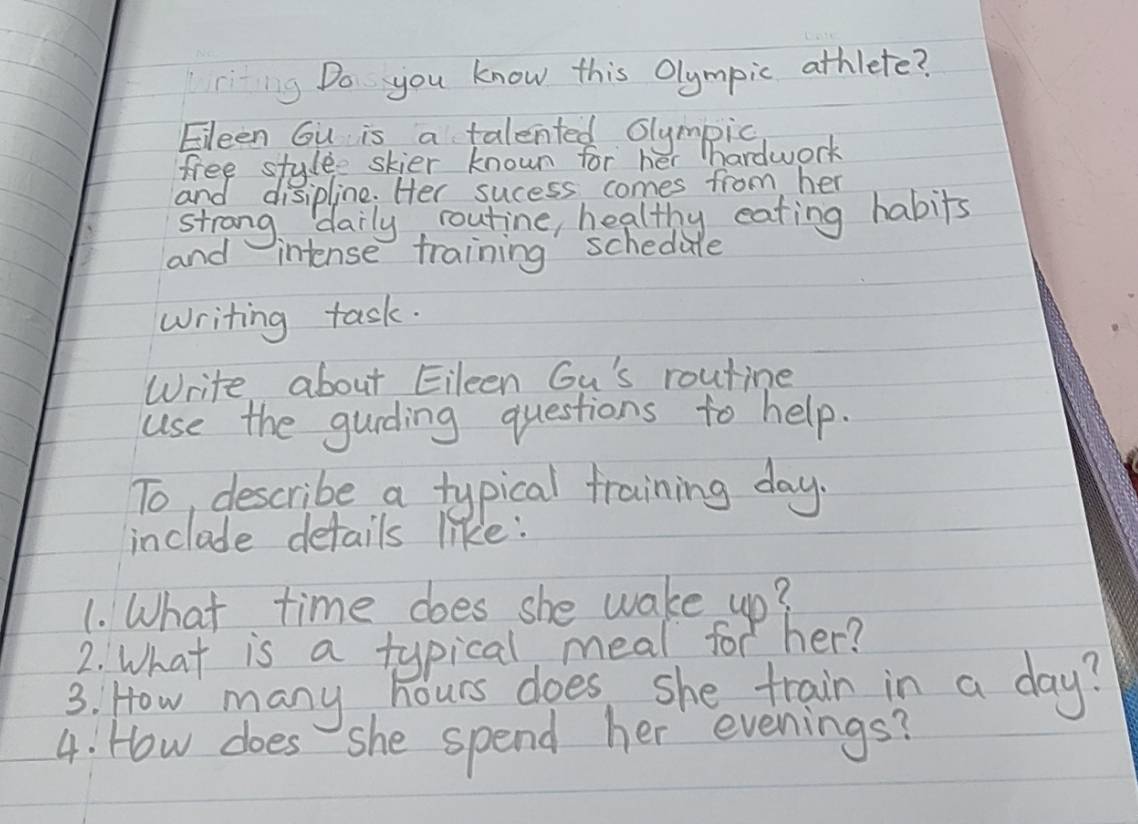 Writing Do you know this Olympic athlete?
Eileen Gu is a talented Olympic
free style skier known for her hardwork
and disipline. Her sucess comes from her
strong daily routine, healthy eating habits
and intense training schedule
writing task.
Write about Eileen Gu's routine
use the gurding questions to help.
To describe a typical training day.
include details like:
1. What time does she wake up?
2. What is a typical meal for her?
3. How many hours does she train in a day?
4. How does she spend her evenings?